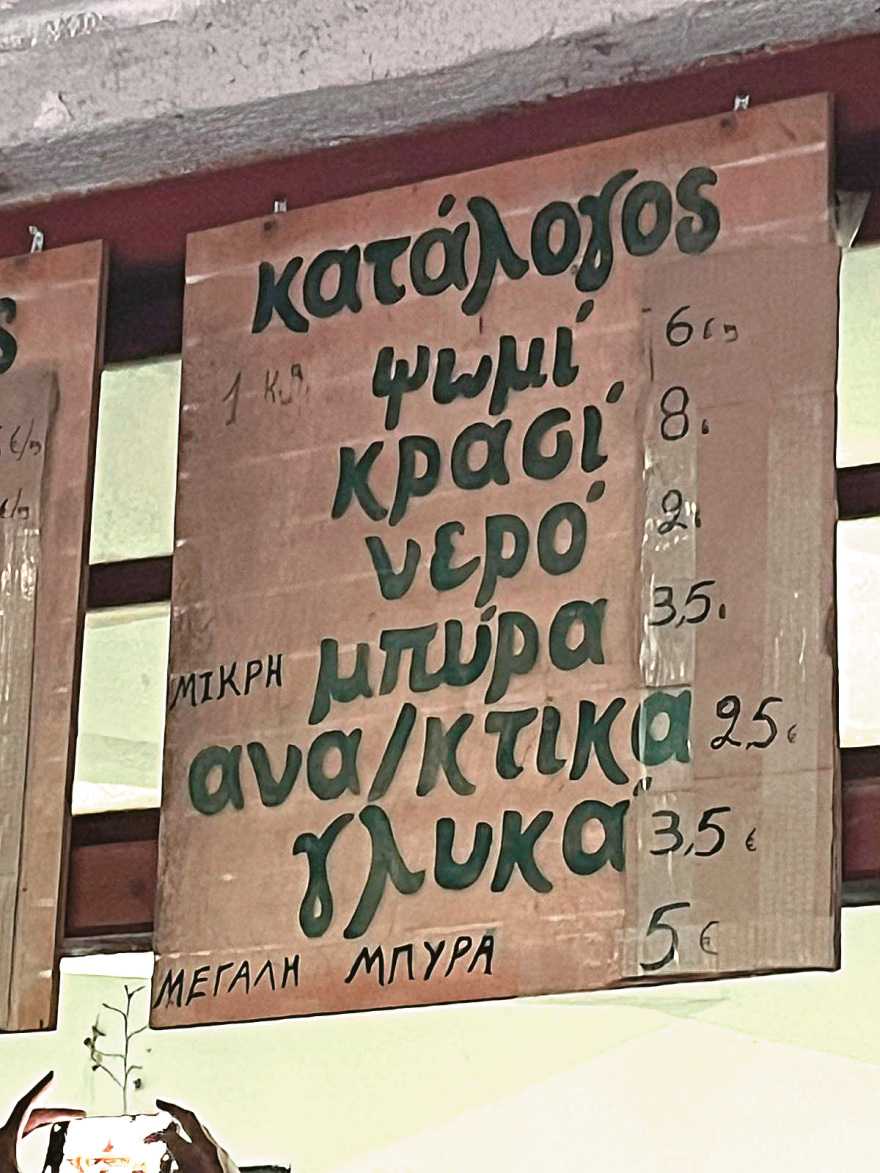 κατάλογος
ψωμί 6
κρασί 8
νερό 2
ΜΙΚΡΗ μπύρα 3,5
ανα/κτικα 2,5 €
γλυκά 3,5 €
ΜΕΓΑΛΗ ΜΠΥΡΑ 5 €